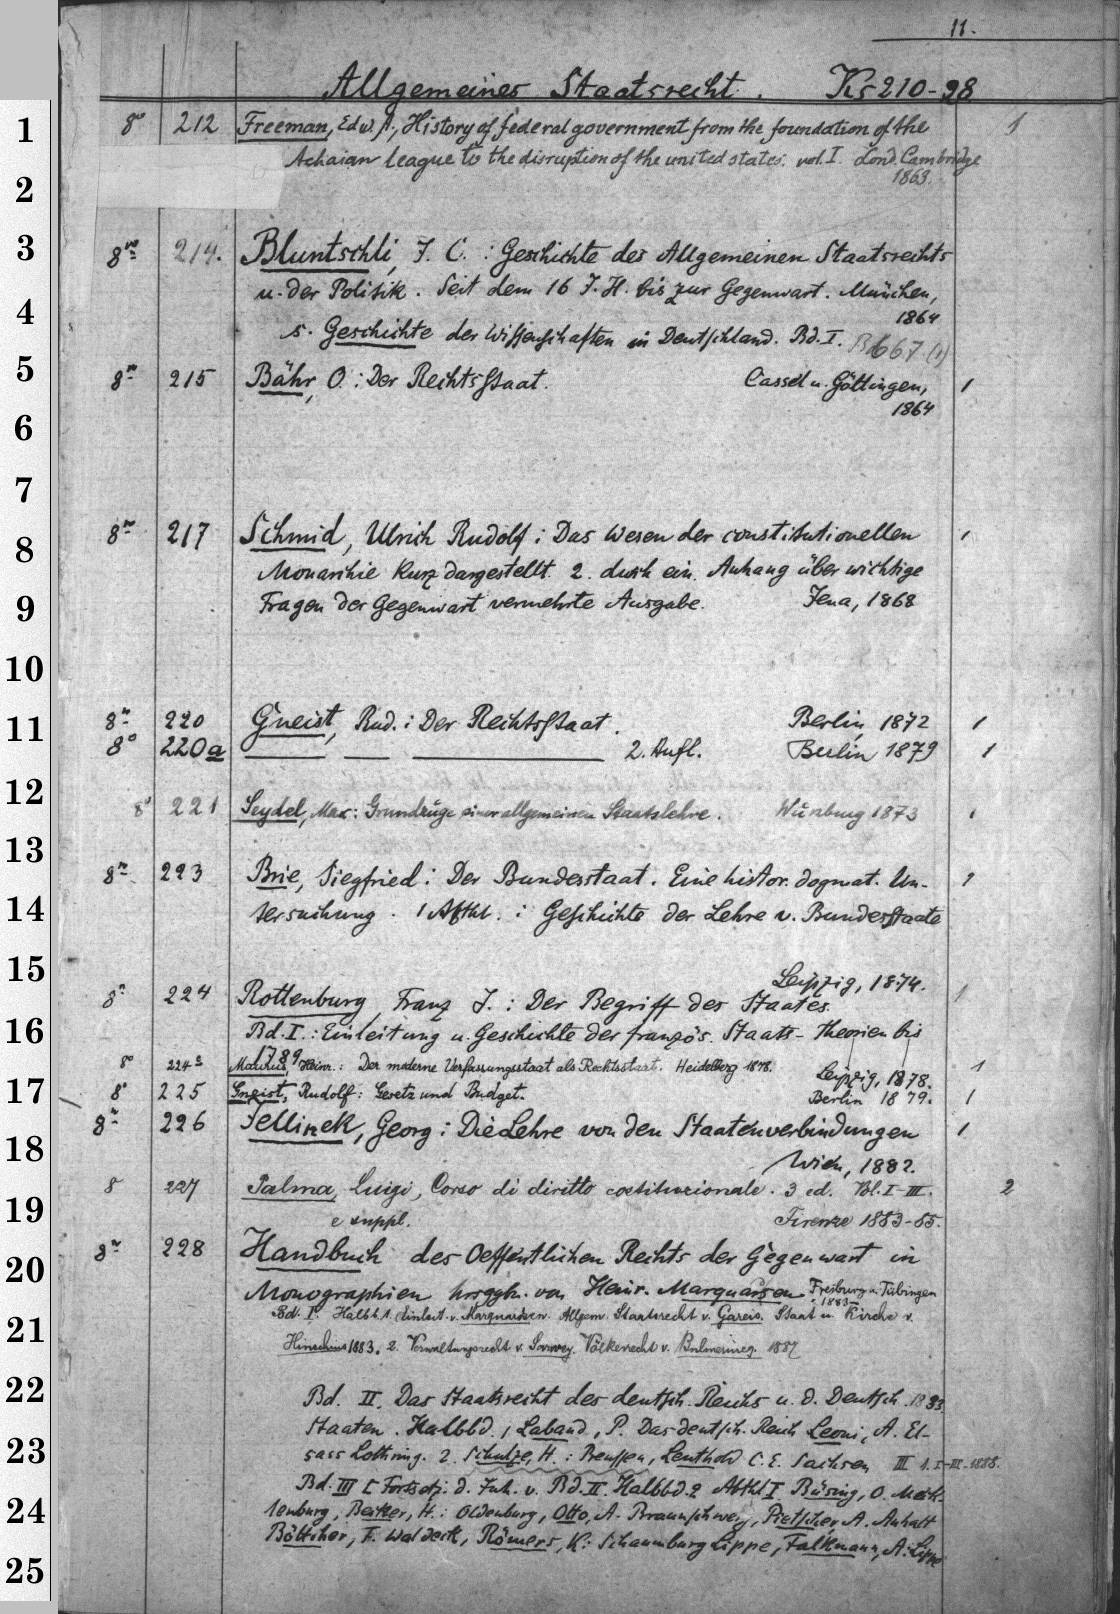 11.
Allgemeines Staatsrecht. Ks 210-98
1 8° 212 Freeman, Edw. A., History of federal government from the foundation of the 1
Achaian league to the disruption of the united states. vol. I. Lond. Cambridge
2 1863.
3 8vo 214. Bluntschli, J. C. : Geschichte des Allgemeinen Staatsrechts
u. der Politik. Seit dem 16 J. H. bis zur Gegenwart. München,
4 1864
s. Geschichte der Wissenschaften in Deutschland. Bd. I. B 667 (1)
5 8vo 215 Bähr, O. : Der Rechtsstaat. Cassel u. Göttingen, 1
6 1864
7
8 8vo 217 Schmid, Ulrich Rudolf : Das Wesen der constitutionellen 1
Monarchie kurz dargestellt. 2. durch ein. Anhang über wichtige
9 Fragen der Gegenwart vermehrte Ausgabe. Jena, 1868
10
11 8vo 220 Gneist, Rud. : Der Rechtsstaat. Berlin, 1872 1
8° 220a 2. Aufl. Berlin 1879 1
12 8° 221 Seydel, Max : Grundzüge einer allgemeinen Staatslehre. Würzburg 1873 1
13
8vo 223 Brie, Siegfried : Der Bundesstaat. Eine histor. dogmat. Un- 1
14 tersuchung. 1 Abthl. : Geschichte der Lehre v. Bundesstaate
15 Leipzig, 1874.
8° 224 Rottenburg, Franz J. : Der Begriff des Staates. 1
16 Bd. I. : Einleitung u. Geschichte der französ. Staats-theorien bis
1789
8° 224a Heinr. : Der moderne Verfassungsstaat als Rechtsstaat. Heidelberg 1878. 1
Leipzig, 1878.
17 8° 225 Gneist, Rudolf : Gesetz und Budget. Berlin 1879. 1
8vo 226 Jellinek, Georg : Die Lehre von den Staatenverbindungen 1
18 Wien, 1882.
8 227 Palma, Luigi, Corso di diritto costituzionale. 3 ed. Vol. I-III. 2
19 e suppl. Firenze 1883-85.
8vo 228 Handbuch des Oeffentlichen Rechts der Gegenwart in
20 Monographien hrsggb. von Heinr. Marquardsen Freiburg u. Tübingen
1883-
Bd. I. Halbb. 1. Einleit. v. Marquardsen. Allgem. Staatsrecht v. Gareis. Staat u. Kirche v.
21 Hinschius 1883. 2. Verwaltungsrecht v. Sarwey. Völkerrecht v. Bulmerincq. 1887
22 Bd. II. Das Staatsrecht des deutsch. Reichs u. d. Deutsch. 1883.
Staaten. Halbbd. 1 Laband, P. Das deutsch. Reich Leoni, A. El-
23 sass Lothring. 2. Schulze, H. : Preussen, Leuthold C. E. Sachsen III 1. I-III. 1888.
Bd. III [Fortsetz. d. Inh. v. Bd. II Halbbd. 2 Abthl I Büsing, O. Meck-
24 lenburg, Becker, H. : Oldenburg, Otto, A. Braunschweig, Pietscher A. Anhalt
Böttcher, F. Waldeck, Römers, K: Schaumburg Lippe, Falkmann, A: Lippe
25